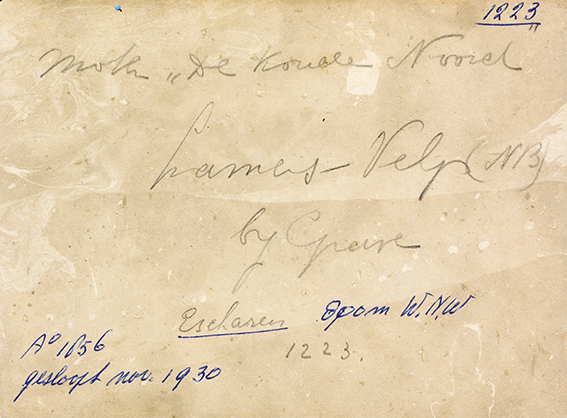 1223
"
Molen „De Koude Noord
Lamers - Velp (NB)
by Grave
Escharen opom W.N.W
1223.
Aº 1856
gesloopt nov. 1930